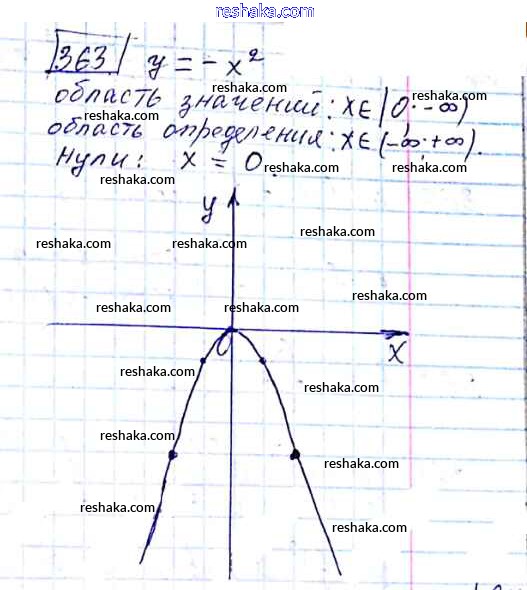 reshaka.com
363 y = -x²
reshaka.com
область значений: x∈[0; -∞)
reshaka.com
reshaka.com
область определения: x∈(-∞; +∞).
нули: x = 0
reshaka.com
reshaka.com
reshaka.com
y
reshaka.com
reshaka.com
reshaka.com
reshaka.com
reshaka.com
reshaka.com
0
x
reshaka.com
reshaka.com
reshaka.com
reshaka.com
reshaka.com
reshaka.com